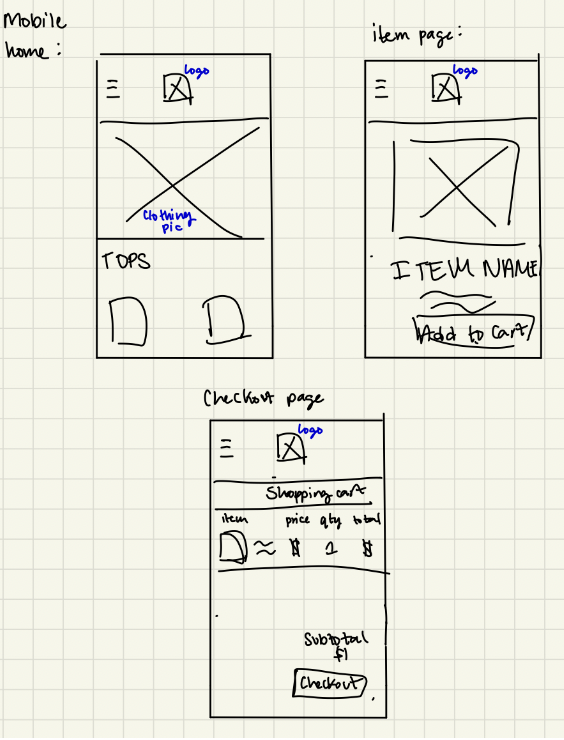 Mobile
home :
item page:
Logo
Clothing
pic
TOPS
Logo
ITEM NAME
Add to Cart
Checkout page
Logo
Shopping cart
item price qty total
$ 1 $
Subtotal
Checkout